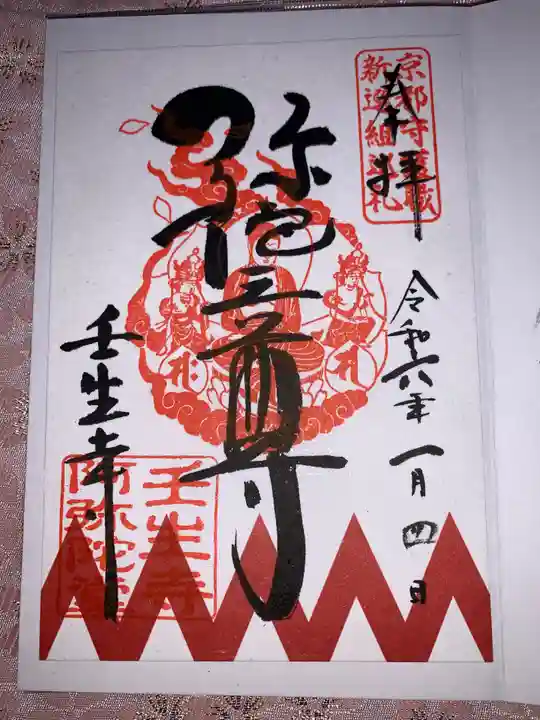 奉拝
京都守護職
新選組巡礼
令和六年一月四日
弥陀三尊
壬生寺
壬生寺
阿弥陀堂